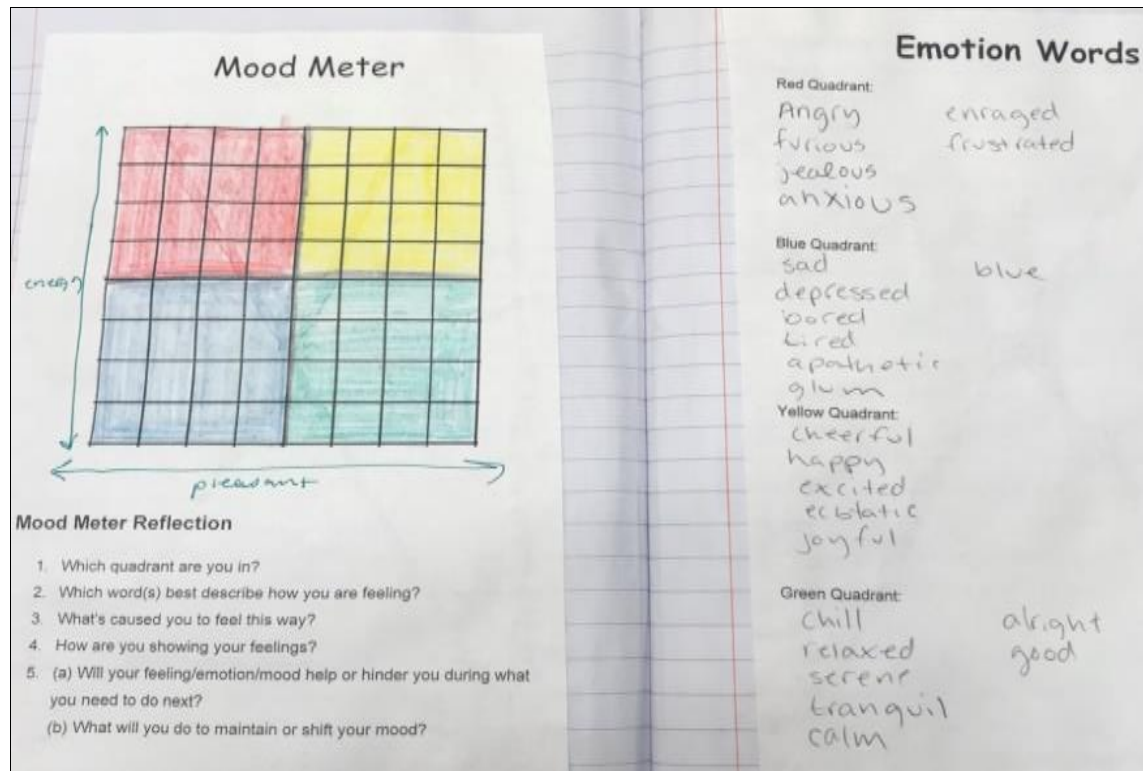 Mood Meter
energy
pleasant
Mood Meter Reflection
1. Which quadrant are you in?
2. Which word(s) best describe how you are feeling?
3. What's caused you to feel this way?
4. How are you showing your feelings?
5. (a) Will your feeling/emotion/mood help or hinder you during what
you need to do next?
(b) What will you do to maintain or shift your mood?
Emotion Words
Red Quadrant:
Angry enraged
furious frustrated
jealous
anxious
Blue Quadrant:
sad blue
depressed
bored
tired
apathetic
glum
Yellow Quadrant:
cheerful
happy
excited
ecstatic
joyful
Green Quadrant:
chill alright
relaxed good
serene
tranquil
calm